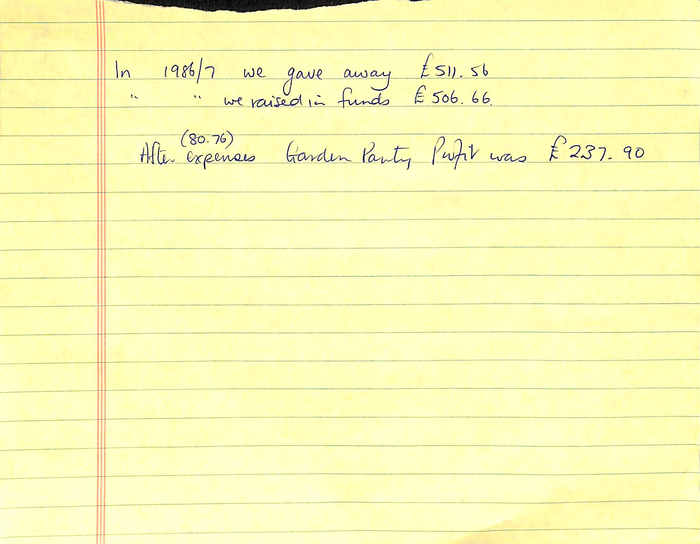 In 1986/7 we gave away £511.56
" " we raised in funds £506.66.
(80.76)
After expenses Garden Party Profit was £237.90